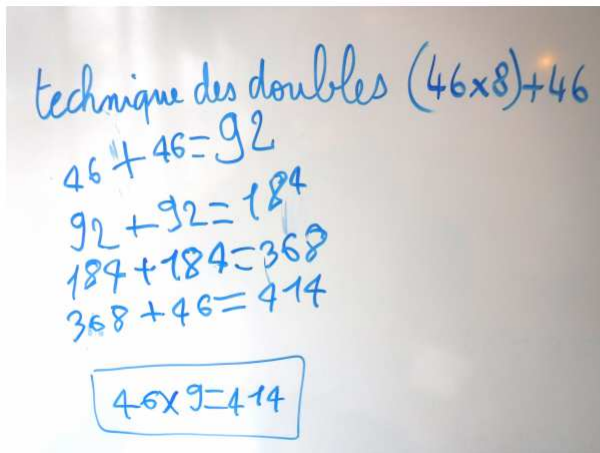 technique des doubles (46x8)+46
46+46=92
92+92=184
184+184=368
368+46=414
46x9=414